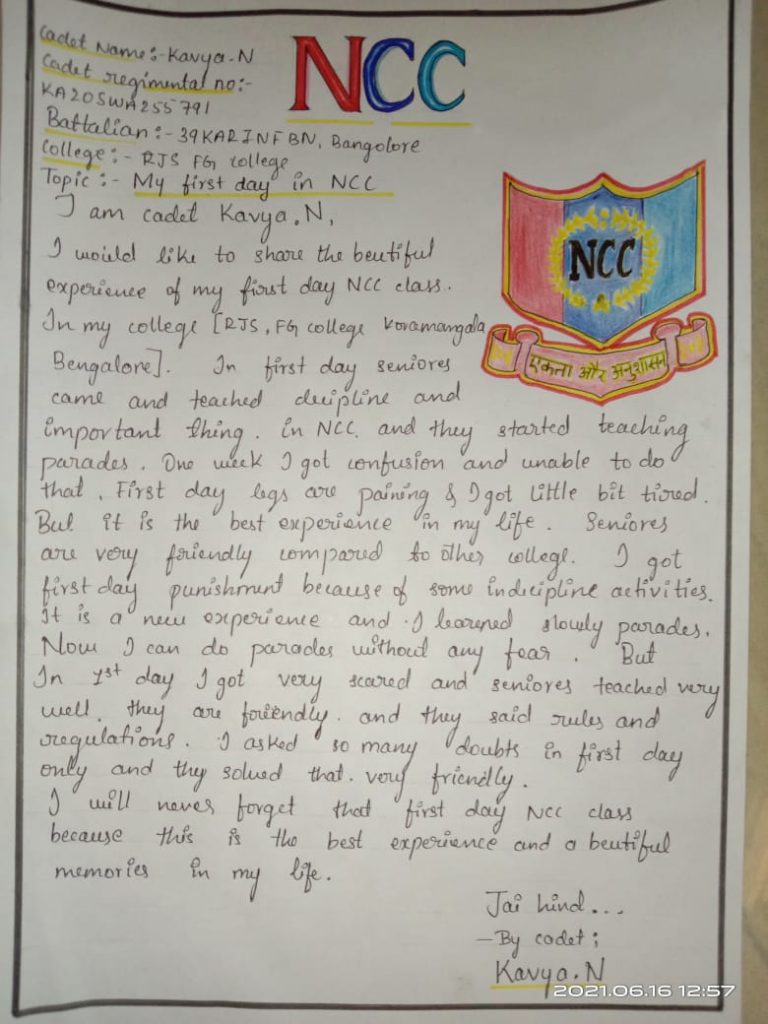 NCC
Cadet Name:- Kavya.N
Cadet regimental no:-
KA20SWA255791
Battalian:- 39KARINFBN, Bangolore
College:- RJS FG College
Topic:- My first day in NCC
I am cadet Kavya.N,
NCC
एकता और अनुशासन
I would like to share the beutiful
experience of my first day NCC class.
In my college [RJS, FG college Koramangala
Bengalore]. In first day seniores
came and teached decipline and
important thing. in NCC. and they started teaching
parades. One week I got confusion and unable to do
that. First day legs are paining & I got little bit tiored.
But it is the best experience in my life. Seniores
are very friendly compared to other college. I got
first day punishment because of some indecipline activities.
It is a new experience and I learned slowly parades.
Now I can do parades without any fear. But
In 1st day I got very scared and seniores teached very
well. they are friendly. and they said rules and
regulations. I asked so many doubts in first day
only and they solved that. very friendly.
I will never forget that first day NCC class
because this is the best experience and a beutiful
memories in my life.
Jai hind...
-By cadet;
Kavya.N
2021.06.16 12:57